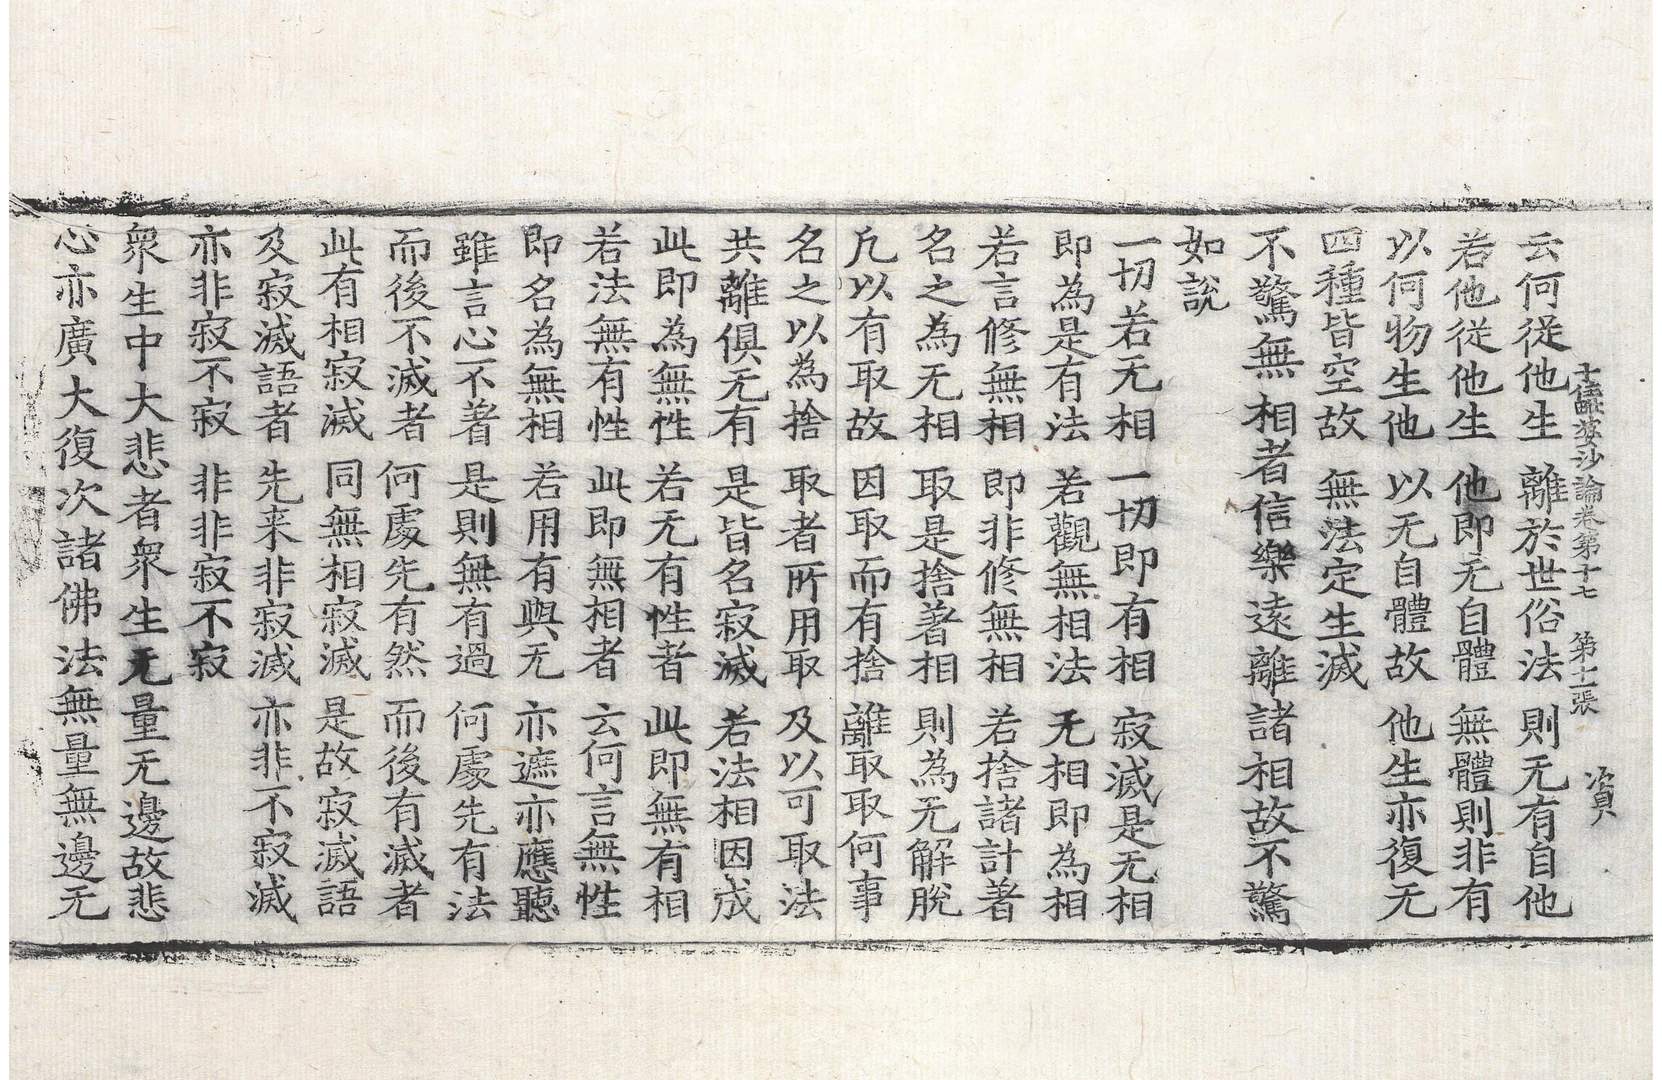 十住毗婆沙論卷第十七 第十一張 資
云何從他生 離於世俗法 則无有自他
若他從他生 他即无自體 無體則非有
以何物生他 以无自體故 他生亦復无
四種皆空故 無法定生滅
不驚無相者信樂遠離諸相故不驚
如說
一切若无相 一切即有相 寂滅是无相
即為是有法 若觀無相法 无相即為相
若言修無相 即非修無相 若捨諸計著
名之為无相 取是捨著相 則為无解脫
凡以有取故 因取而有捨 離取取何事
名之以為捨 取者所用取 及以可取法
共離俱无有 是皆名寂滅 若法相因成
此即為無性 若无有性者 此即無有相
若法無有性 此即無相者 云何言無性
即名為無相 若用有與无 亦遮亦應聽
雖言心不著 是則無有過 何處先有法
而後不滅者 何處先有然 而後有滅者
此有相寂滅 同無相寂滅 是故寂滅語
及寂滅語者 先来非寂滅 亦非不寂滅
亦非寂不寂 非非寂不寂
衆生中大悲者衆生无量无邊故悲
心亦廣大復次諸佛法無量無邊无